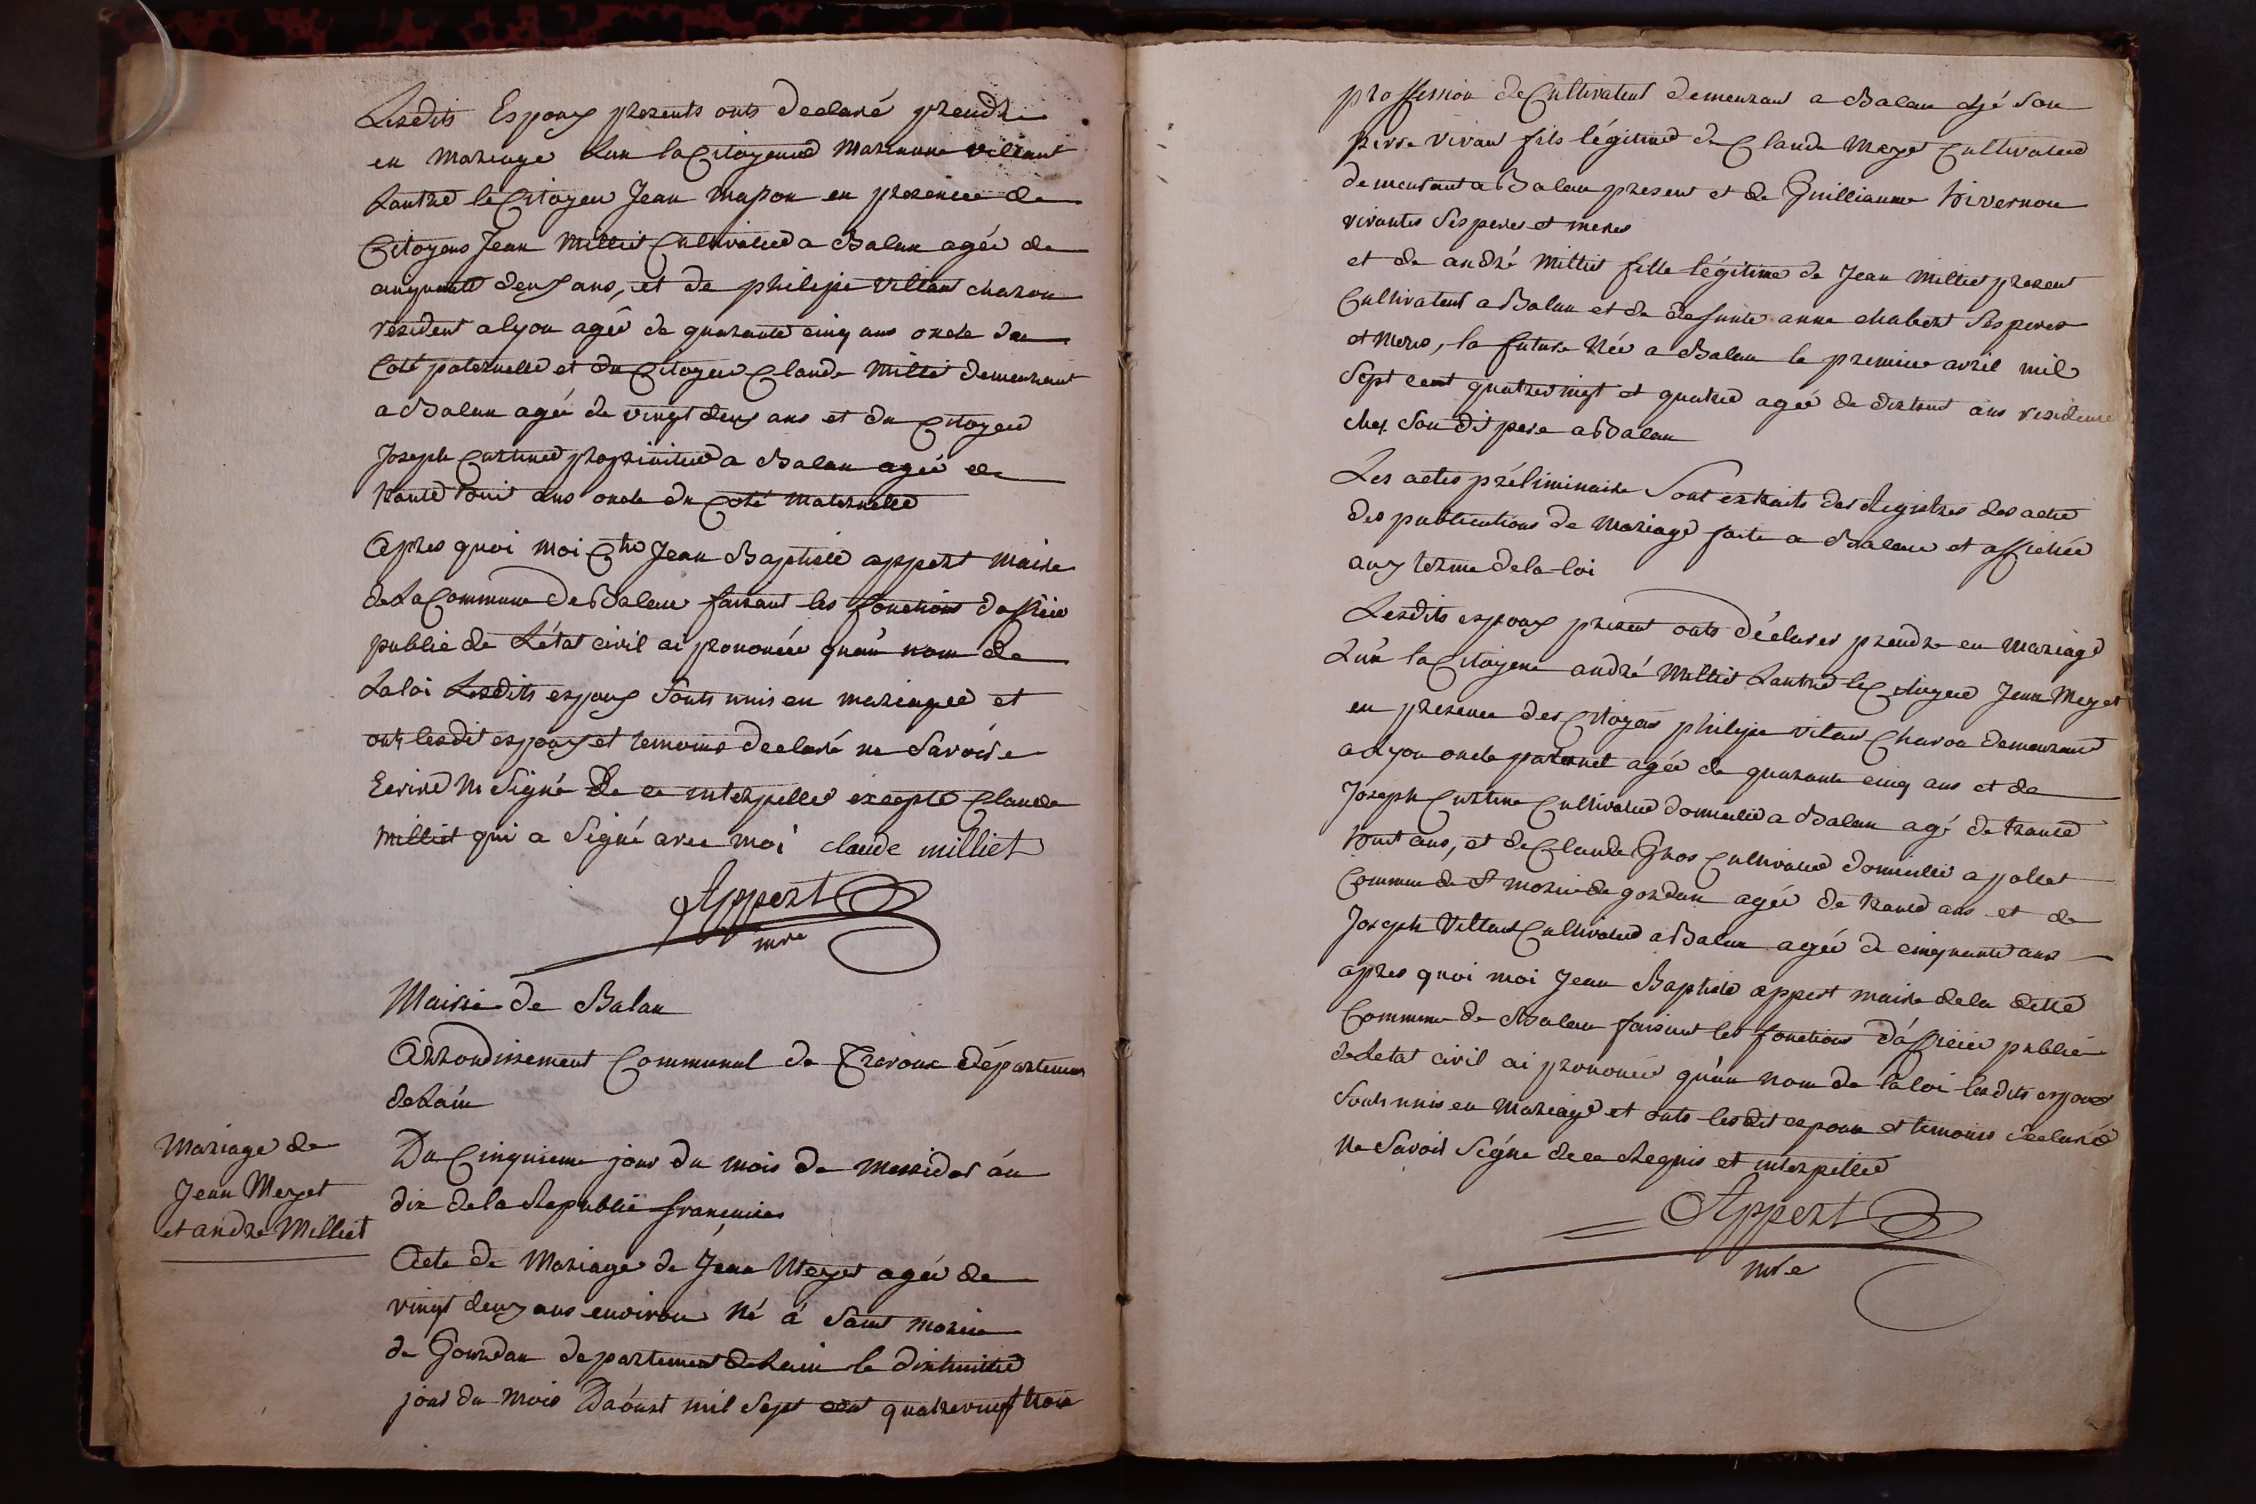 Lesdits Espoux presents onts declaré prendre
en mariage L'un la Citoyenne Marianne villant
Lautre le Citoyen Jean mapon en presence de
Citoyens Jean Milliet Cultivateur a Balan agée de
cinquante deux ans, et de philipe villant charon
résident a lyon agée de quarante cinq ans oncle du
Coté paternelle et du Citoyen Claude Milliet demeurant
a Balan agée de vingt deux ans et du Citoyen
Joseph Curtine proprietaire a Balan agée de
trante huit ans oncle du Coté maternelle
Apres quoi moi Jean Baptiste appert maire
de La Commune De Balan faisant les fonctions d'officier
public de L'état civil ai prononcée qu'au nom de
La loi Lesdits espoux sonts unis en mariage et
onts lesdit espoux et temoins declaré ne savoire
Ecrire ni signé de ce interpellés excepté Claude
Milliet qui a signé avec moi claude milliet
Appert
mre
Mairie de Balan
Arrondissement Communal de Trevoux département
de Lain
Du Cinquieme jour du mois de messidor an
dix de la Republi francaise
Mariage de
Jean Meyet
et andré Milliet
Acte de Mariage de Jean Meyet agée de
vingt deux ans environ Né á Saint morice
de Gourdan departement de Lain le dixhuitie
jour du mois D'aóust mil sept cent quatrevingt trois
proffession de Cultivateur demeurant a Balan chez son
perre vivant fils légitime de Claude Meyet Cultivateur
demeurant a Balan present et de Guillianne hivernon
vivantes ses peres et meres
et de andré Milliet fille légitime de Jean Milliet present
Cultivateur a Balan et de defunte anne chabert ses peres
et meres, la future Née a Balan le premier avril mil
sept cent quatrevingt et quatre agée de dixhuit ans residente
chez son dit pere a Balan
Les actes préliminaire sont extraits des Registres des acte
des publications de Mariage faite a Balan et affichée
aux terme de la loi
Lesdits espoux present onts déclarer prendre en mariage
L'un la Citoyene andré Milliet Lautre le Citoyen Jean Meyet
en presence des Citoyens philipe vilant Charon demeurant
a Lyon oncle paternel agée de quarante cinq ans et de
Joseph Curtine Cultivateur domicilié a Balan agé de trante
huit ans, et de Claude Gros Cultivateur domicilié a pollet
Commune de St morice de gordan agée de trante ans et de
Joseph Villant Cultivateur a Balan agée de cinquante ans
apres quoi moi Jean Baptiste appert maire de la ditte
Commune de Balan faisant les fonctions d'officier public
de Letat civil ai prononcée qu'au nom de la loi lesdits espoux
sonts unis en Mariage et onts lesdit espoux et temoins declaré
Ne savoir signé de ce Requis et interpellée
Appert
mre